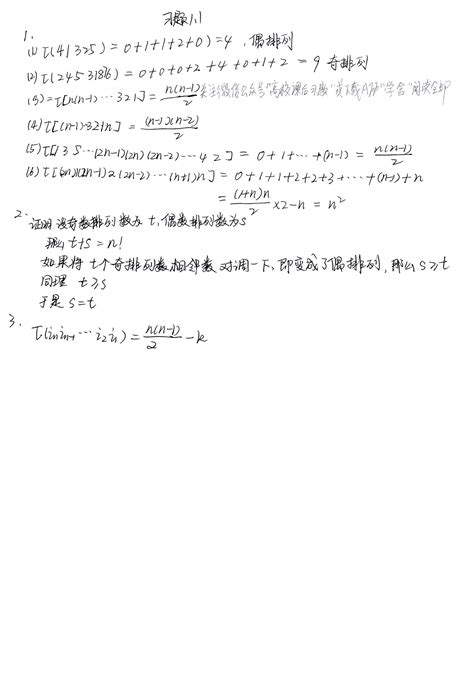 习题1.1
1.
(1) τ(41325) = 0+1+1+2+0) = 4 , 偶排列
(2) τ(24531876) = 0+0+0+2+4+0+1+2 = 9 奇排列
(3) = τ[n(n-1)···321] = n(n-1)/2
(4) τ[(n-1)···321n] = (n-1)(n-2)/2
(5) τ[135···(2n-1)(2n)(2n-2)···42] = 0+1+···+(n-1) = n(n-1)/2
(6) τ[(2n)1(2n-1)2(2n-2)···(n+1)n] = 0+1+1+2+2+3+···+(n-1)+n
= (1+n)n/2 ×2-n = n²
2. 证明 设奇数排列数为 t, 偶数排列数为s
那么 t+s = n!
如果将 t个奇排列数相邻数 对调一下, 即变成了偶排列, 那么 s≥t
同理 t≥s
于是 s=t
3. τ(iₙiₙ₋₁···i₂i₁) = n(n-1)/2 - k